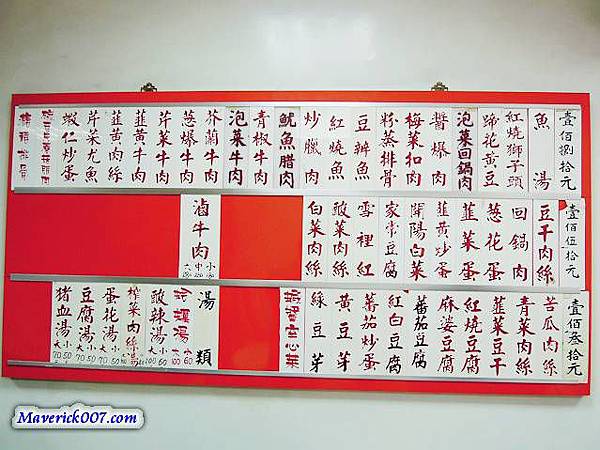 壹佰捌拾元
魚湯
紅燒獅子頭
蹄花黃豆
泡菜回鍋肉
醬爆肉
梅菜扣肉
粉蒸排骨
豆瓣魚
紅燒魚
炒臘肉
魷魚腊肉
青椒牛肉
泡菜牛肉
芥蘭牛肉
蔥爆牛肉
芹菜牛肉
韮黃牛肉
韮黃肉絲
芹菜尤魚
蝦仁炒蛋
壹佰伍拾元
豆干肉絲
回鍋肉
蔥花蛋
韮菜蛋
韮黃炒蛋
開陽白菜
家常豆腐
雪裡紅
豉菜肉絲
白菜肉絲
滷牛肉
壹佰叁拾元
苦瓜肉絲
青菜肉絲
韮菜豆干
紅燒豆腐
麻婆豆腐
蕃茄豆腐
紅白豆腐
蕃茄炒蛋
黃豆芽
綠豆芽
湯類
酸辣湯 大100 小60
榨菜肉絲湯
蛋花湯 大70 小50
豆腐湯 大70 小50
豬血湯 大70 小50
Maverick007.com